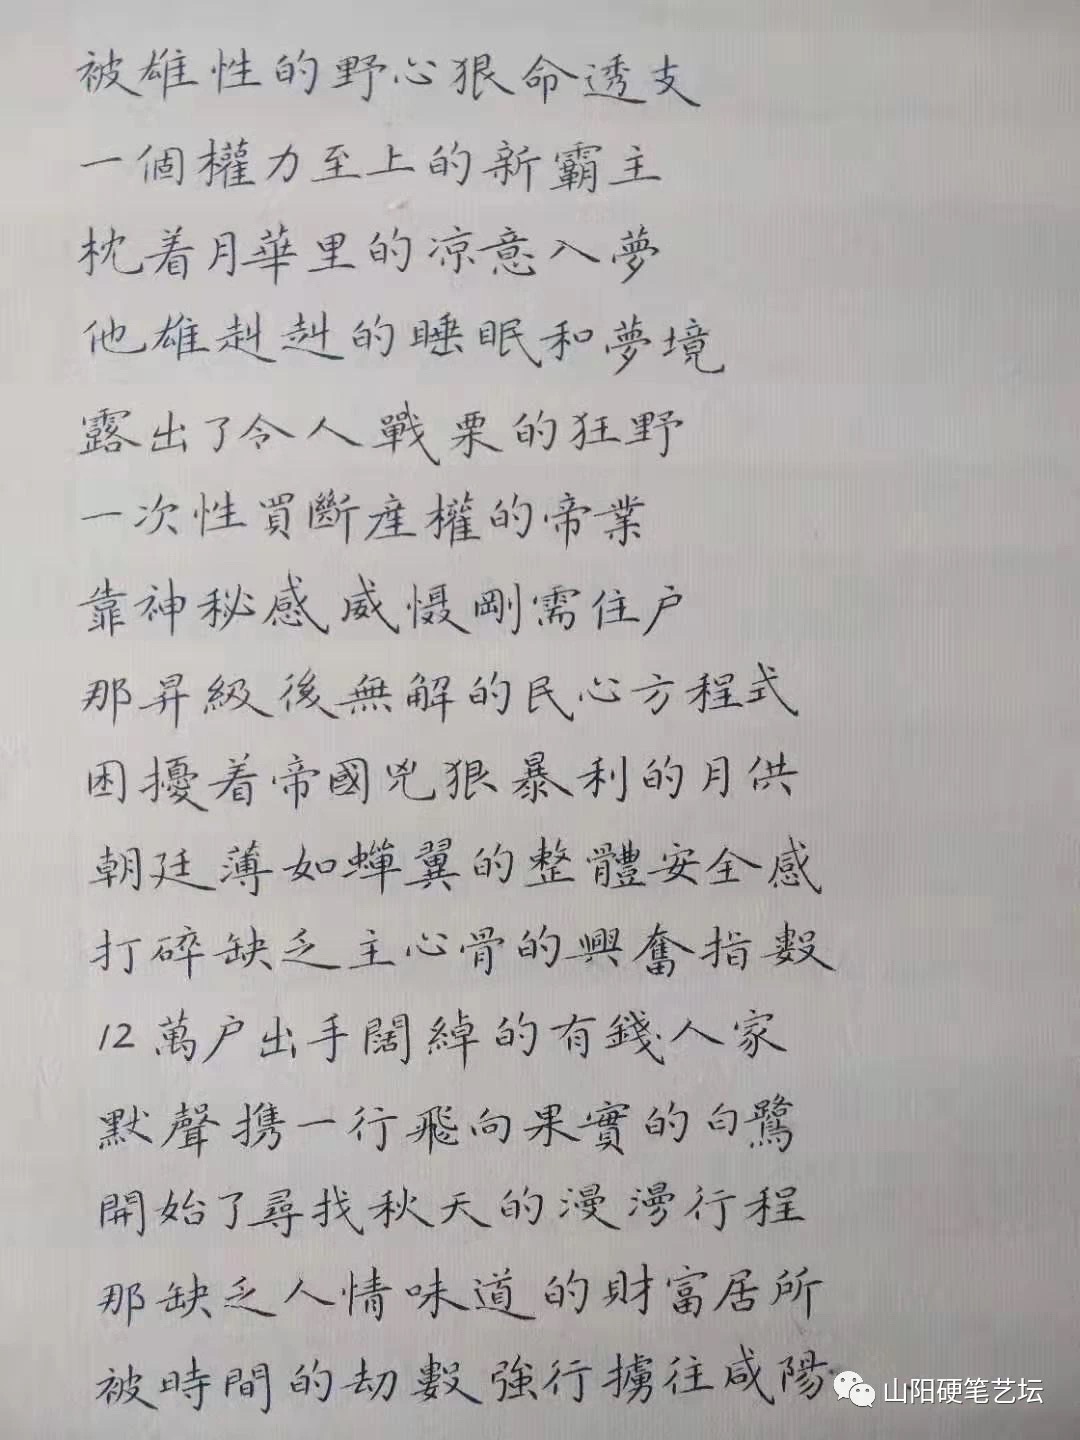 被雄性的野心狠命透支
一個權力至上的新霸主
枕着月華里的凉意入夢
他雄赳赳的睡眠和夢境
露出了令人戰栗的狂野
一次性買斷産權的帝業
靠神秘感威慑剛需住户
那昇級後無解的民心方程式
困擾着帝國兇狠暴利的月供
朝廷薄如蟬翼的整體安全感
打碎缺乏主心骨的興奮指數
12萬户出手闊綽的有錢人家
默聲携一行飛向果實的白鷺
開始了尋找秋天的漫漫行程
那缺乏人情味道的財富居所
被時間的劫數強行擄往咸陽
山阳硬笔艺坛